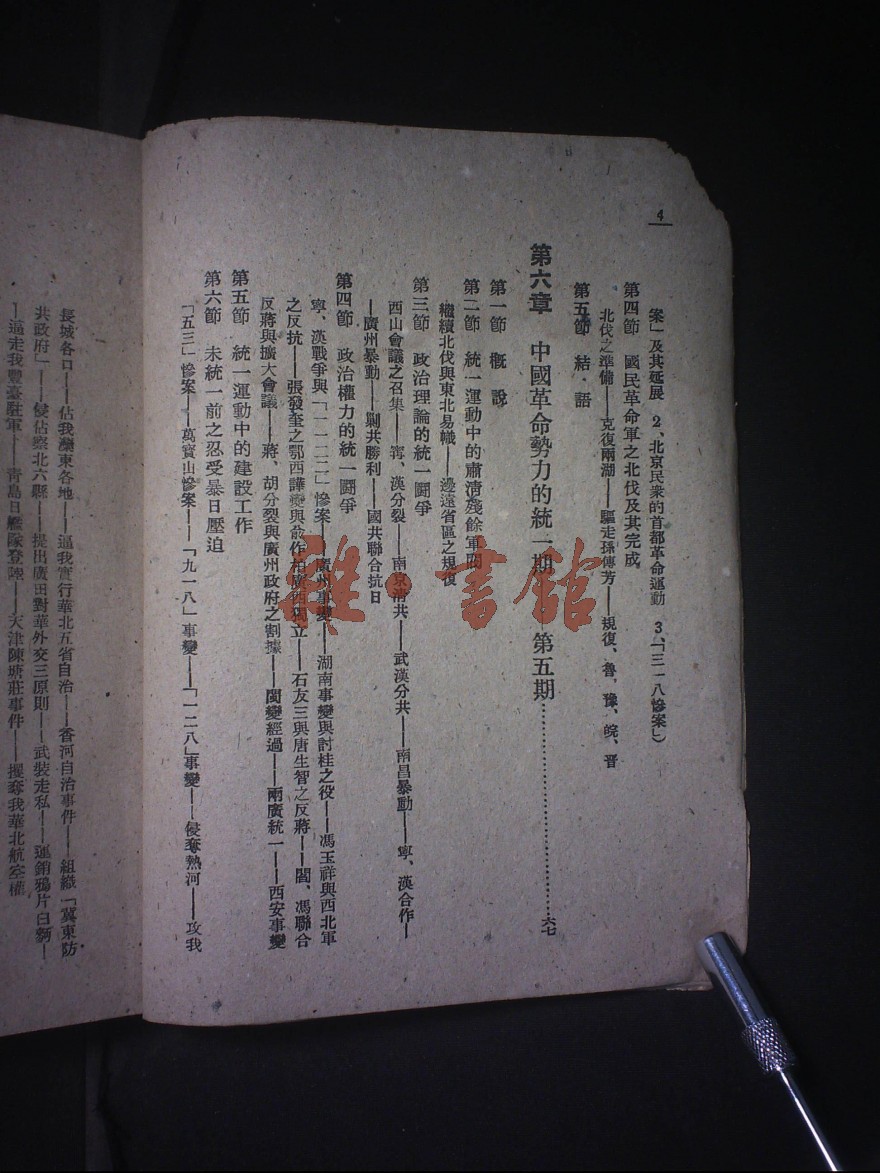 4
案」及其延展　2、北京民衆的首都革命運動　3、「三一八慘案」）
第四節　國民革命軍之北伐及其完成
北伐之準備——克復兩湖——驅走孫傳芳——規復、魯，豫、皖、晉
第五節　結・語
第六章　中國革命勢力的統一期——第五期……六七
第一節　概　說
第二節　統一運動中的肅清殘餘軍閥
繼續北伐與東北易幟——邊遠省區之規復
第三節　政治理論的統一鬪爭
西山會議之召集——寗、漢分裂——南京清共——武漢分共——南昌暴動——寧、漢合作—
—廣州暴動——剿共勝利——國共聯合抗日
第四節　政治權力的統一鬪爭
寧、漢戰爭與「一一二二」慘案——廣州事變——湖南事變與討桂之役——馮玉祥與西北軍
之反抗——張發奎之鄂西譁變與俞作柏廣西獨立——石友三與唐生智之反蔣——閻、馮聯合
反蔣與擴大會議——蔣、胡分裂與廣州政府之割據——閩變經過——兩廣統一——西安事變
第五節　統一運動中的建設工作
第六節　未統一前之忍受暴日壓迫
「五三」慘案——萬寶山慘案——「九一八」事變——「一二八」事變——侵奪熱河——攻我
長城各口——佔我灤東各地——逼我實行華北五省自治——香河自治事件——組織「冀東防
共政府」——侵佔察北六縣——提出廣田對華外交三原則——武裝走私——運銷鴉片白麵—
—逼走我豐臺駐軍——青島日艦隊登陸——天津陳塘莊事件——攫奪我華北航空權
雅・書館